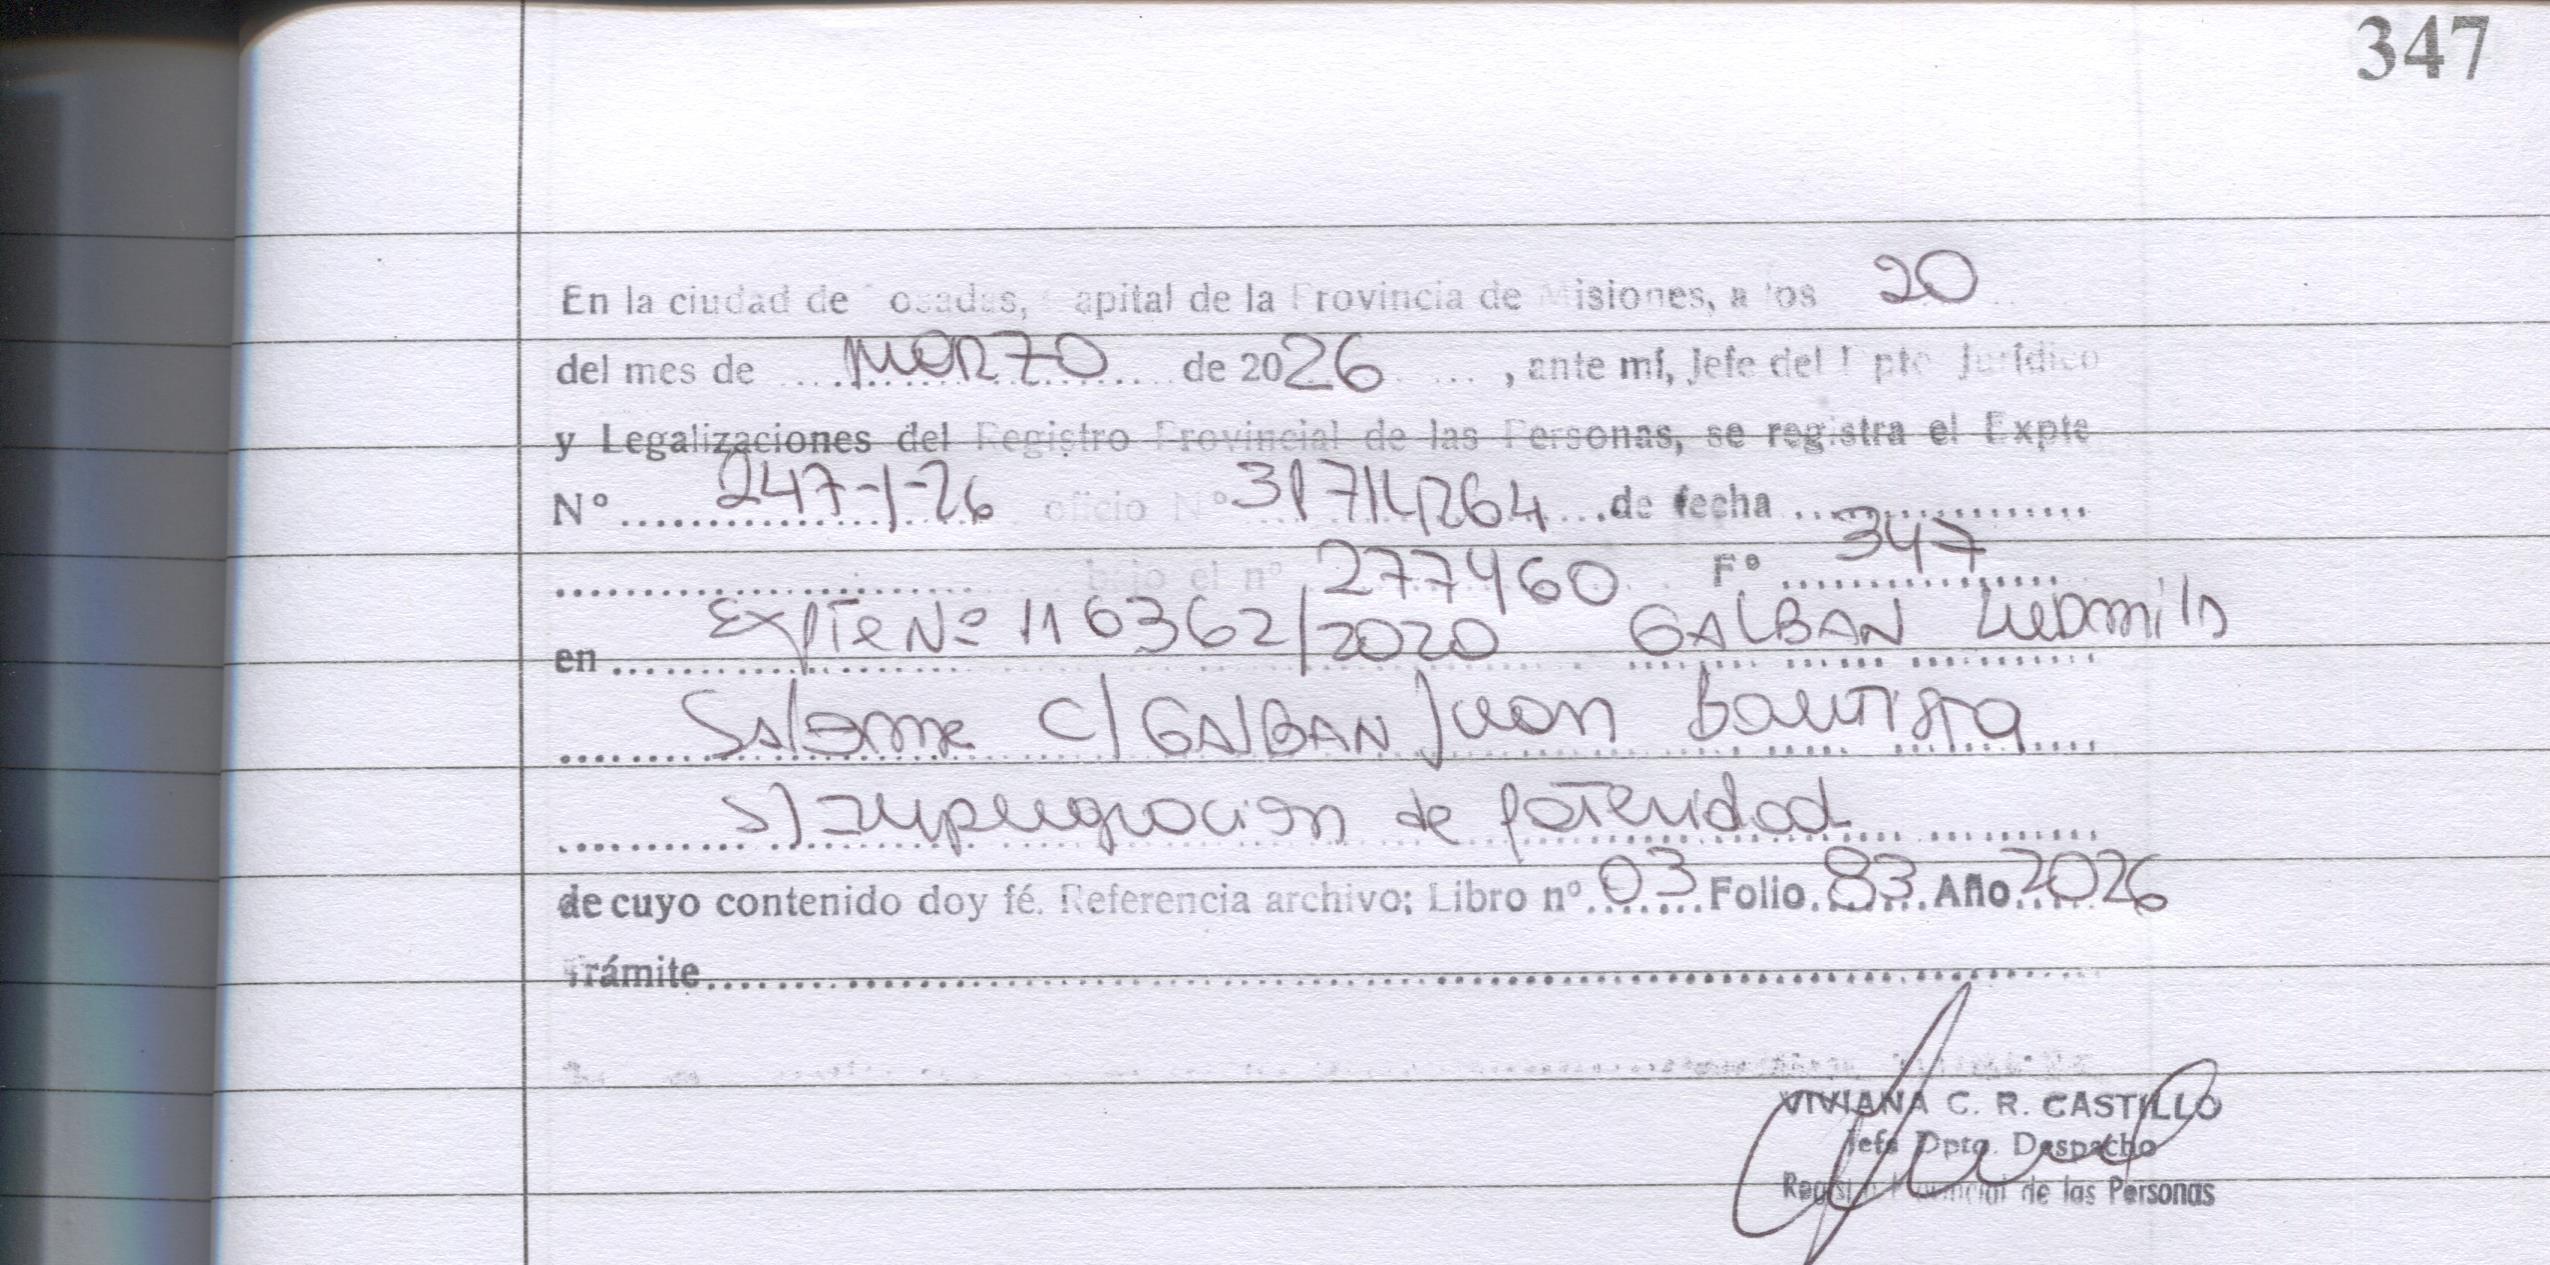 347
En la ciudad de Posadas, Capital de la Provincia de Misiones, a los 20
del mes de marzo de 2026, ante mí, Jefe del Dpto Jurídico
y Legalizaciones del Registro Provincial de las Personas, se registra el Expte
Nº 247-1-26 oficio Nº 31714264 de fecha
bajo el nº 277460 Fº 347
en Expte Nº 116362/2020 GALBAN Ludmila
Salome c/ GALBAN Juan Bautista
s/ Impugnacion de paternidad
de cuyo contenido doy fé. Referencia archivo; Libro nº 03 Folio 83 Año 2026
Trámite
VIVIANA C. R. CASTILLO
Jefa Dpto. Despacho
Registro Provincial de las Personas